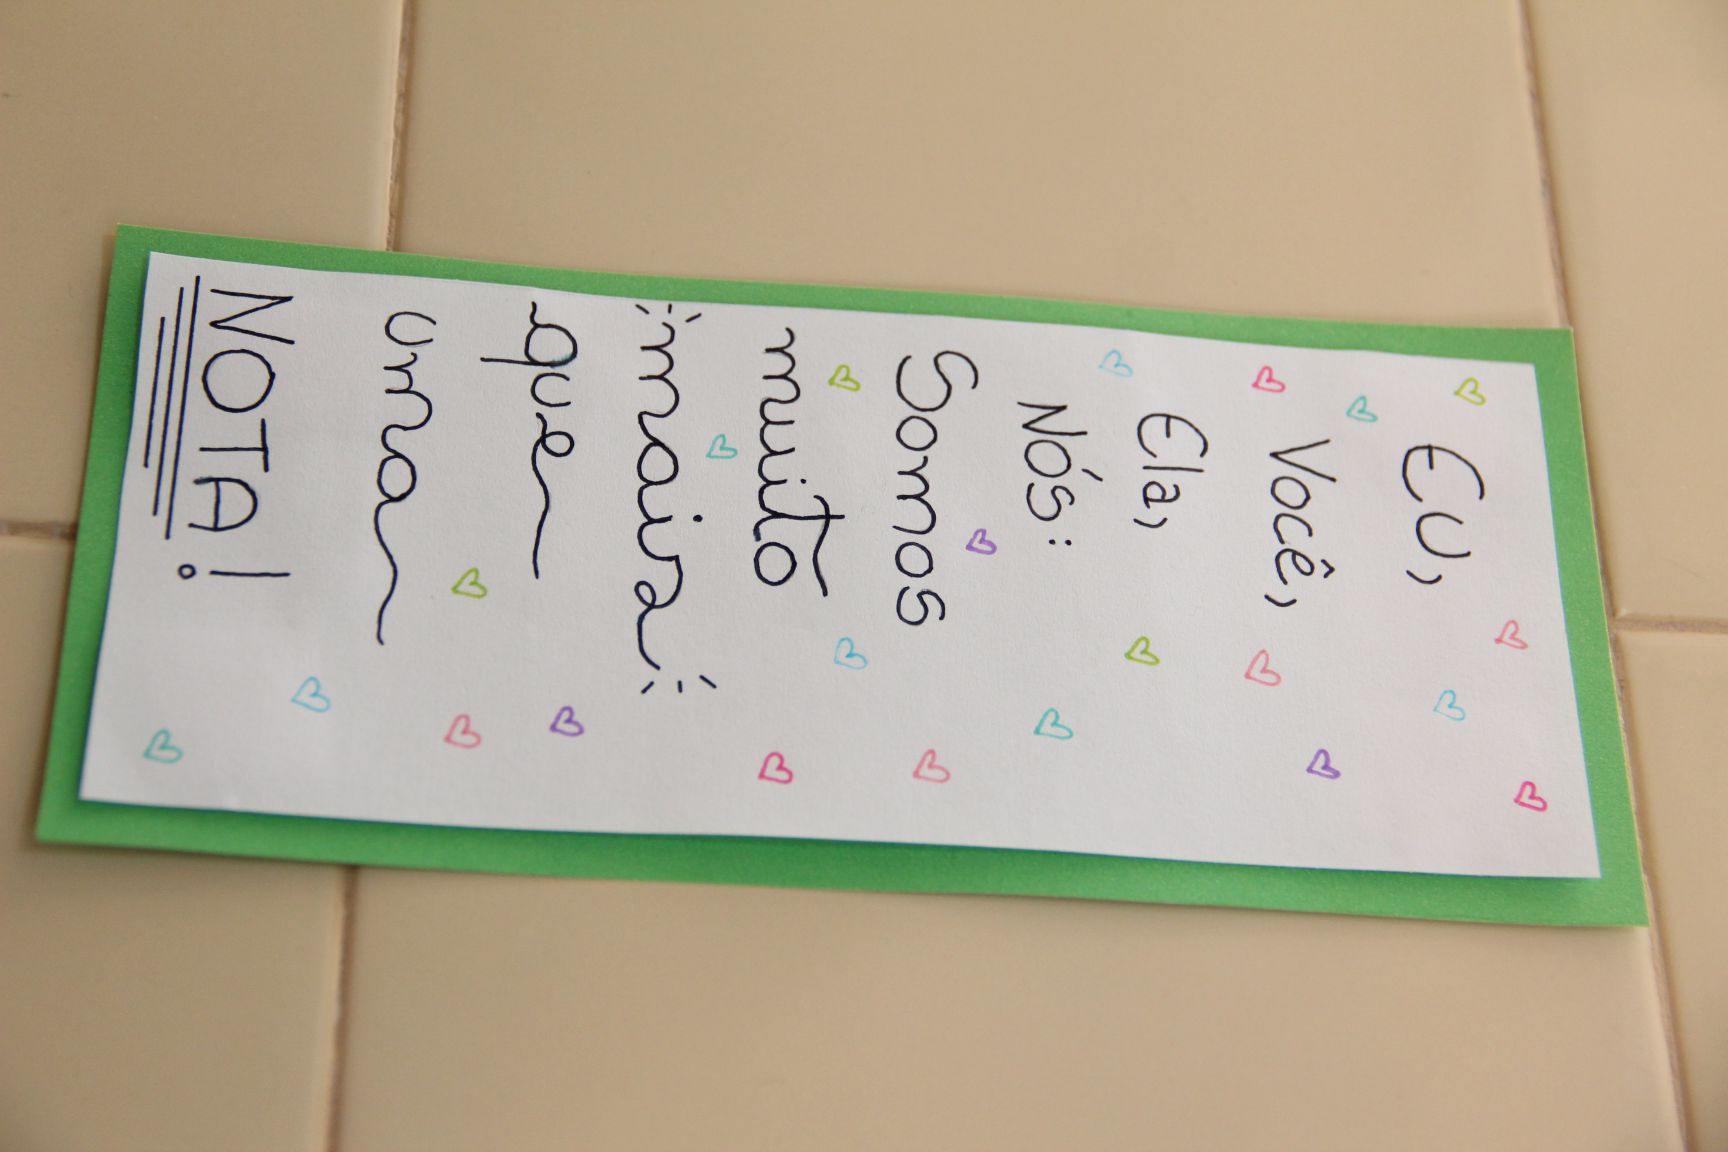 Eu,
Você,
Ela,
Nós:
Somos
muito
mais
que
uma
NOTA!